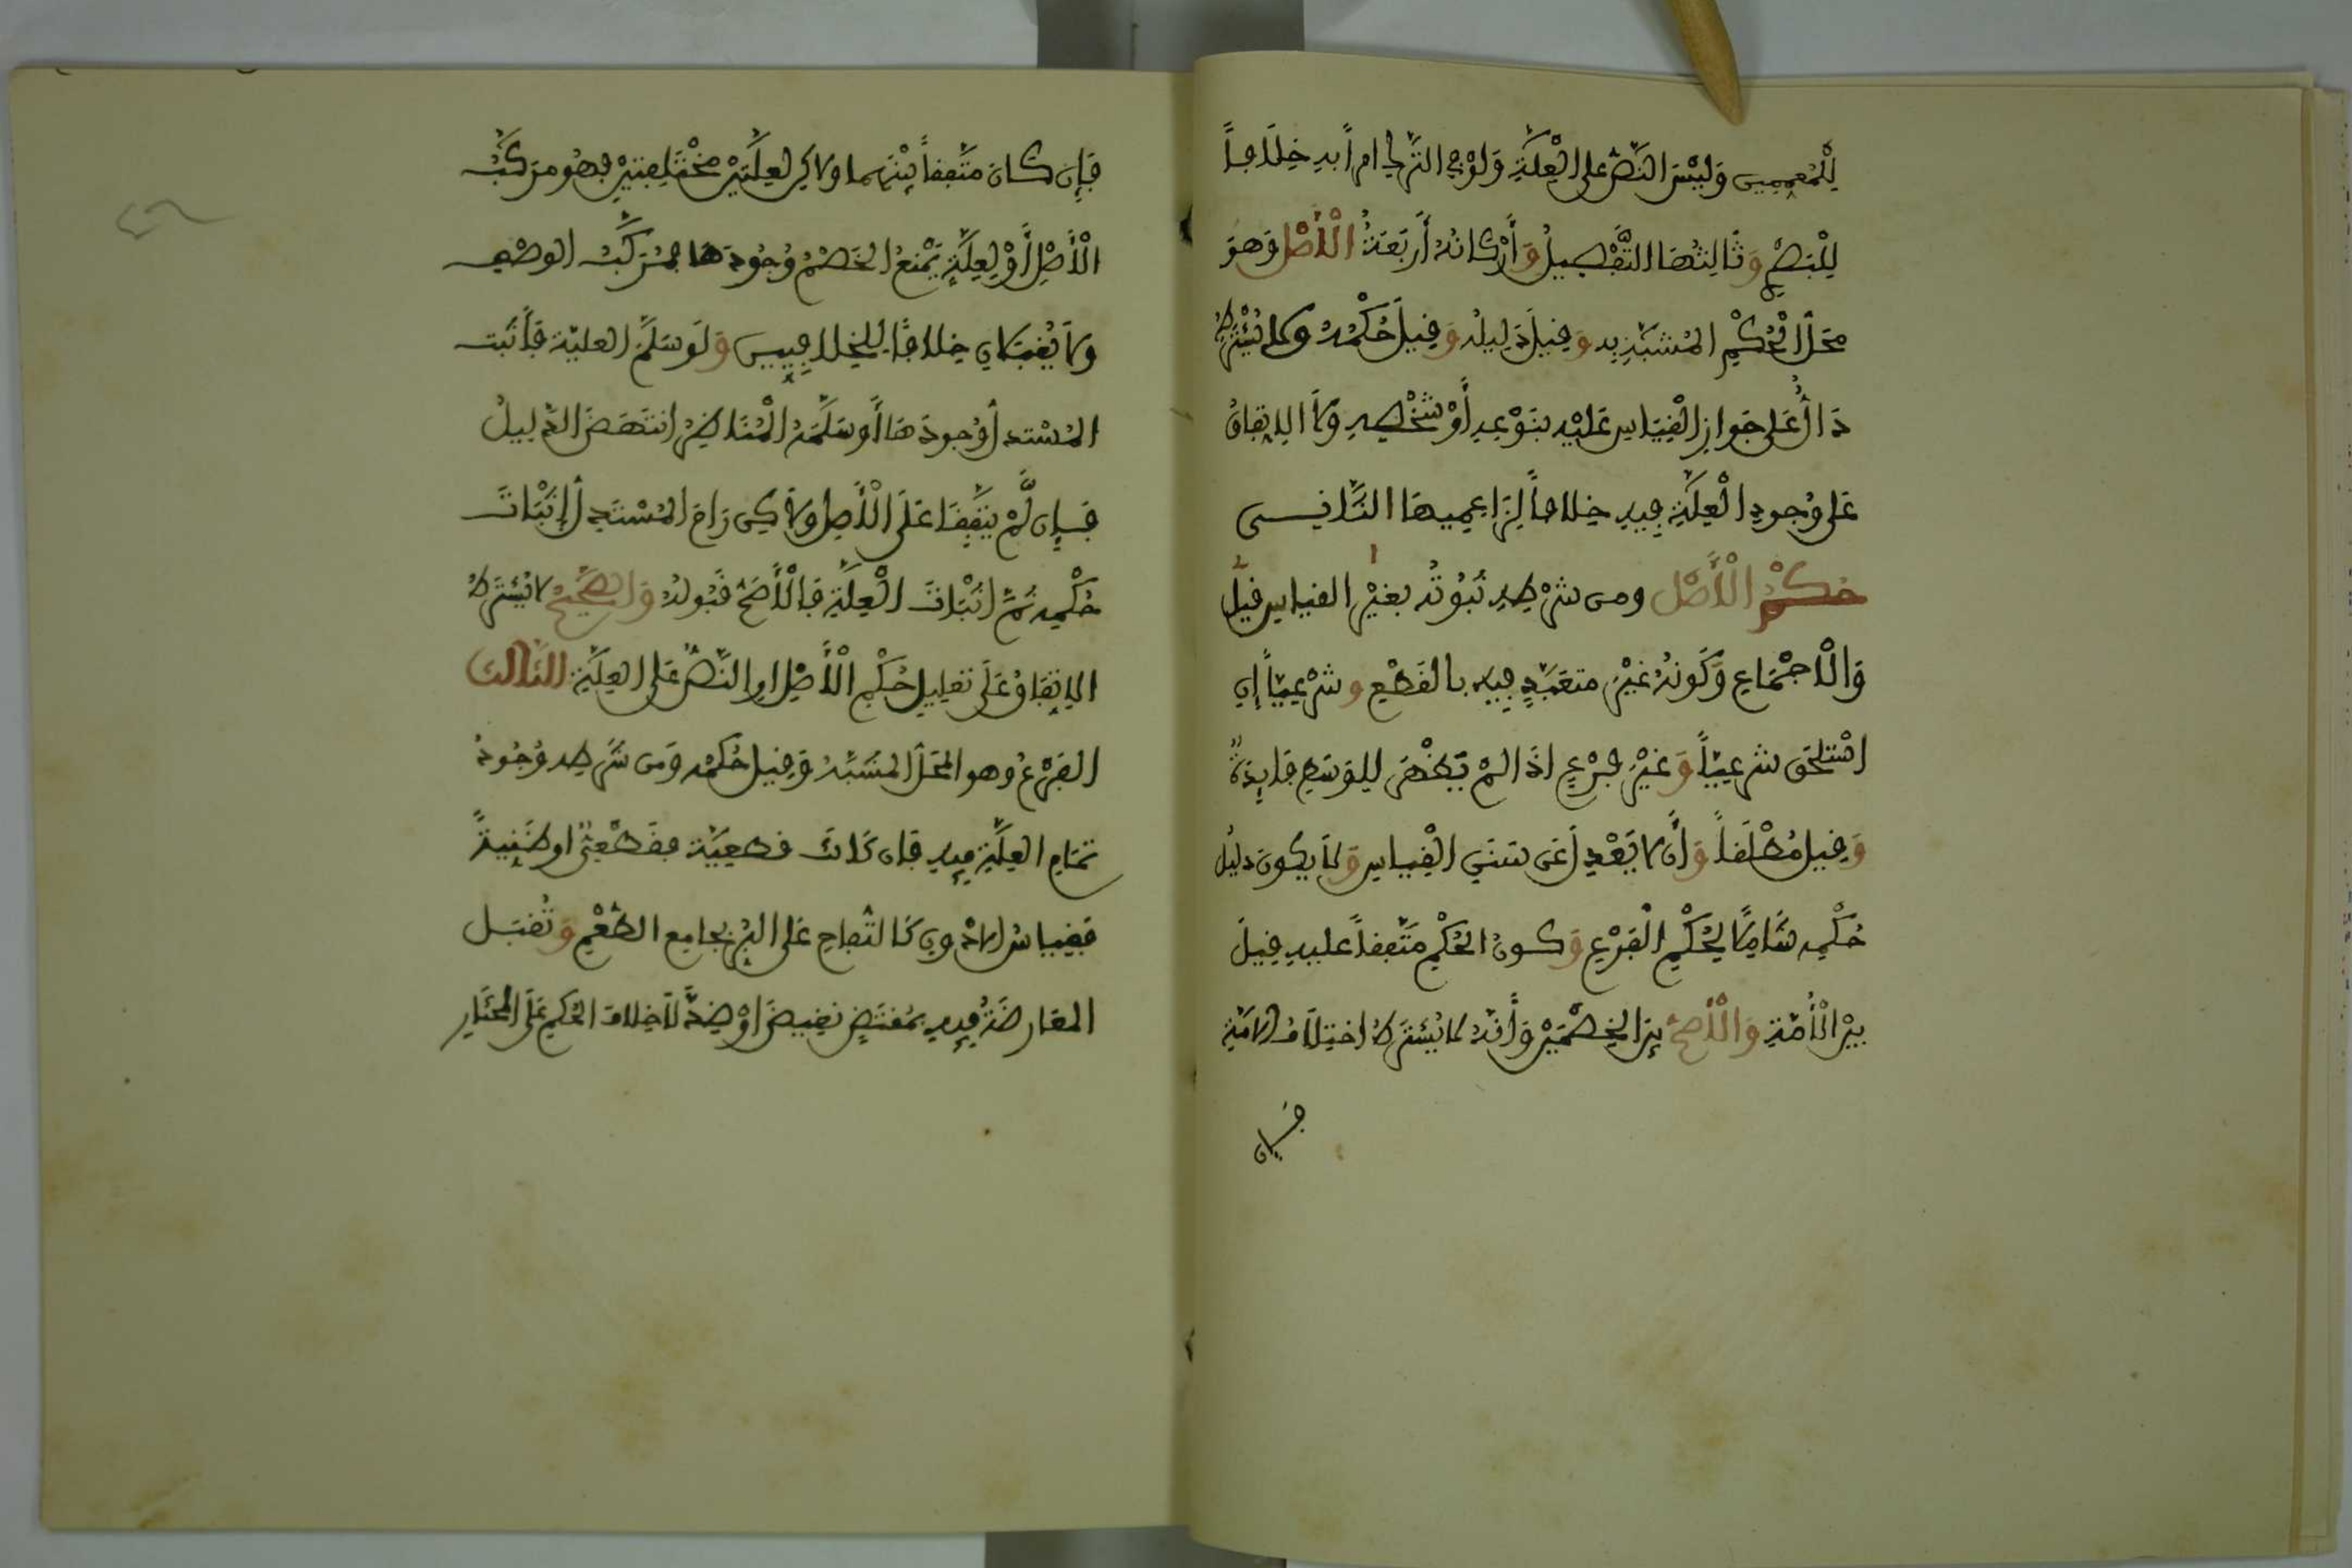 لِلْمُعَمِّمِينَ وَلَيْسَ النَّصُّ عَلَى الْعِلَّةِ وَلَوْ فِي التَّرْكِ أَمْرًا بِهِ خِلَافًا
لِلْبَصْرِيِّ وَثَالِثُهَا التَّفْصِيلُ وَأَرْكَانُهُ أَرْبَعَةٌ الْأَصْلُ وَهُوَ
مَحَلُّ الْحُكْمِ الْمُشَبَّهِ بِهِ وَقِيلَ دَلِيلُهُ وَقِيلَ حُكْمُهُ وَلَا يُشْتَرَطُ
دَالٌّ عَلَى جَوَازِ الْقِيَاسِ عَلَيْهِ بِنَوْعِهِ أَوْ شَخْصِهِ وَلَا الِاتِّفَاقُ
عَلَى وُجُودِ الْعِلَّةِ فِيهِ خِلَافًا لِزَاعِمِيهِمَا الثَّانِي
حُكْمُ الْأَصْلِ ومن شَرْطِهِ ثُبُوتُهُ بِغَيْرِ القياس قِيلَ
وَالْإِجْمَاعِ وَكَوْنُهُ غَيْرَ متعَبَّدٍ فِيهِ بالقَطْعِ وشَرْعِيًّا إِنِ
اسْتَلْحَقَ شَرْعِيًّا وَغَيْرَ فَرْعٍ إِذَا لَمْ يَظْهَرْ لِلْوَسَطِ فَايِدَةٌ
وَقِيلَ مُطْلَقًا وَأَن لَا يَعْدِلَ عَن سَنَنِ الْقِيَاسِ وَلَا يكون دليلُ
حُكْمِهِ شَامِلًا لِحُكْمِ الْفَرْعِ وَكون الحُكْمِ مُتَّفَقًا عليه قِيلَ
بَيْنَ الْأُمَّةِ وَالْأَصَحُّ بَيْنَ الْخَصْمَيْنِ وَأَنَّهُ لَا يُشْتَرَطُ اخْتِلَافُ الْأُمَّةِ
فَإِن
فَإِن كَانَ مُتَّفَقًا بَيْنَهُمَا وَلَكِن لِعِلَّتَيْنِ مُخْتَلِفَتَيْنِ فَهُوَ مُرَكَّبُ
الْأَصْلِ أَوْ لِعِلَّةٍ يَمْنَعُ الْخَصْمُ وُجُودَهَا فَمُرَكَّبُ الوصْفِ
وَلَا يُقْبَلَانِ خِلَافًا لِلْخِلَافِيِّينَ وَلَو سَلَّمَ العلّة فَأَثْبَت
المُسْتدِلُّ وُجُودَهَا أَوْ سَلَّمَهُ الْمُنَاظِرُ انْتَهَضَ الدَّلِيلُ
فَإِن لَّمْ يَتَّفِقَا عَلَى الْأَصْلِ وَلَكِن رَامَ الْمُسْتَدِلُّ إِثْبَاتَ
حُكْمِهِ ثُمَّ إِثْبَاتَ الْعِلَّةِ فَالْأَصَحُّ قَبُولُهُ وَالصَّحِيحُ لَا يُشْتَرَطُ
الِاتِّفَاقُ عَلَى تَعْلِيلِ حُكْمِ الْأَصْلِ أَوِ النَّصُّ عَلَى الْعِلَّةِ الثَّالث
الفَرْعُ وهو المَحَلُّ المُشَبَّهُ وَقِيلَ حُكْمُهُ وَمِن شَرْطِهِ وُجُودُ
تَمَامِ العِلَّةِ فِيهِ فَإِن كَانَت قطعِيَّة فقَطْعِيٌّ أو ظَنِّيةً
فَقِيَاسُ الأَدْوَنِ كَالتُّفَّاحِ عَلَى البُرِّ بِجَامِعِ الطَّعْمِ وَتُقْبَل
المعَارضَةُ فِيهِ بِمُقْتَضٍ نَقِيضَ أَوْ ضِدَّ لَا خِلَافَ الحُكْمِ عَلَى المُخْتَارِ